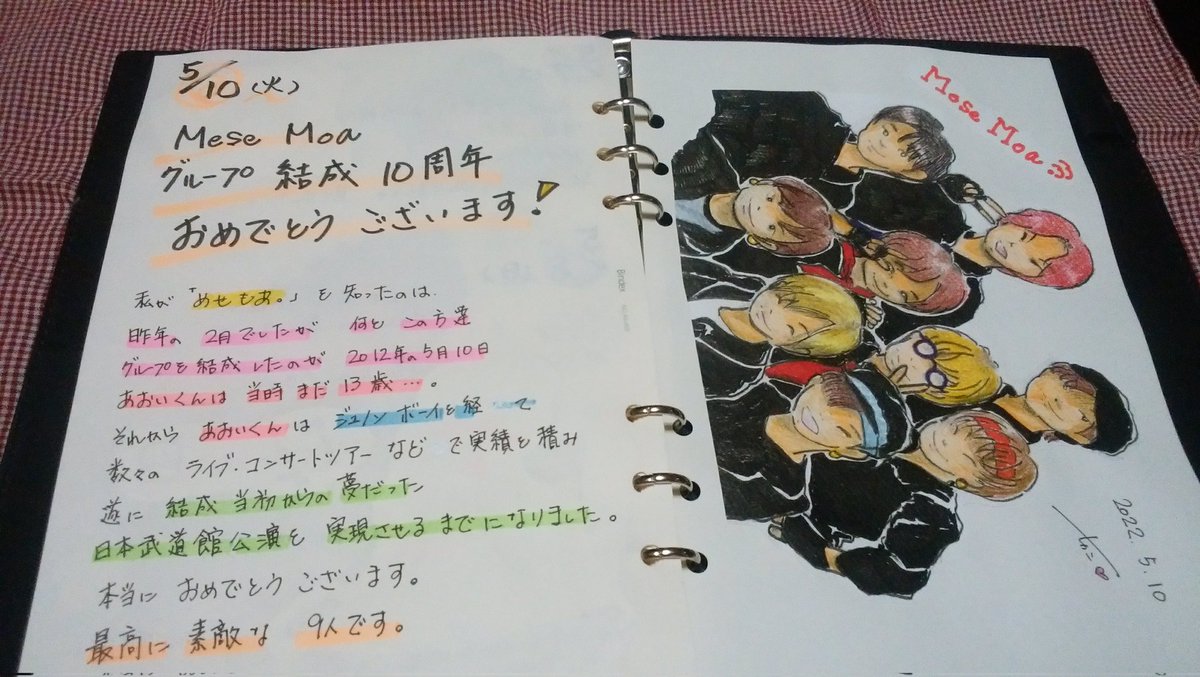 5/10(火)
Mese Moa
グループ 結成 10周年
おめでとう ございます!
私が「めせもあ。」を 知ったのは.
昨年の 2月でしたが 何と この方達
グループを結成したのが 2012年の5月10日
あおいくんは 当時 まだ 13歳…。
それから あおいくんは ジュノンボーイを経て
数々の ライブ・コンサートツアー などで実績を積み
遂に 結成当初からの 夢だった
日本武道館公演を 実現させるまでになりました。
本当に おめでとう ございます。
最高に 素敵な 9人です。
Mose Moa
Binder
2022. 5. 10